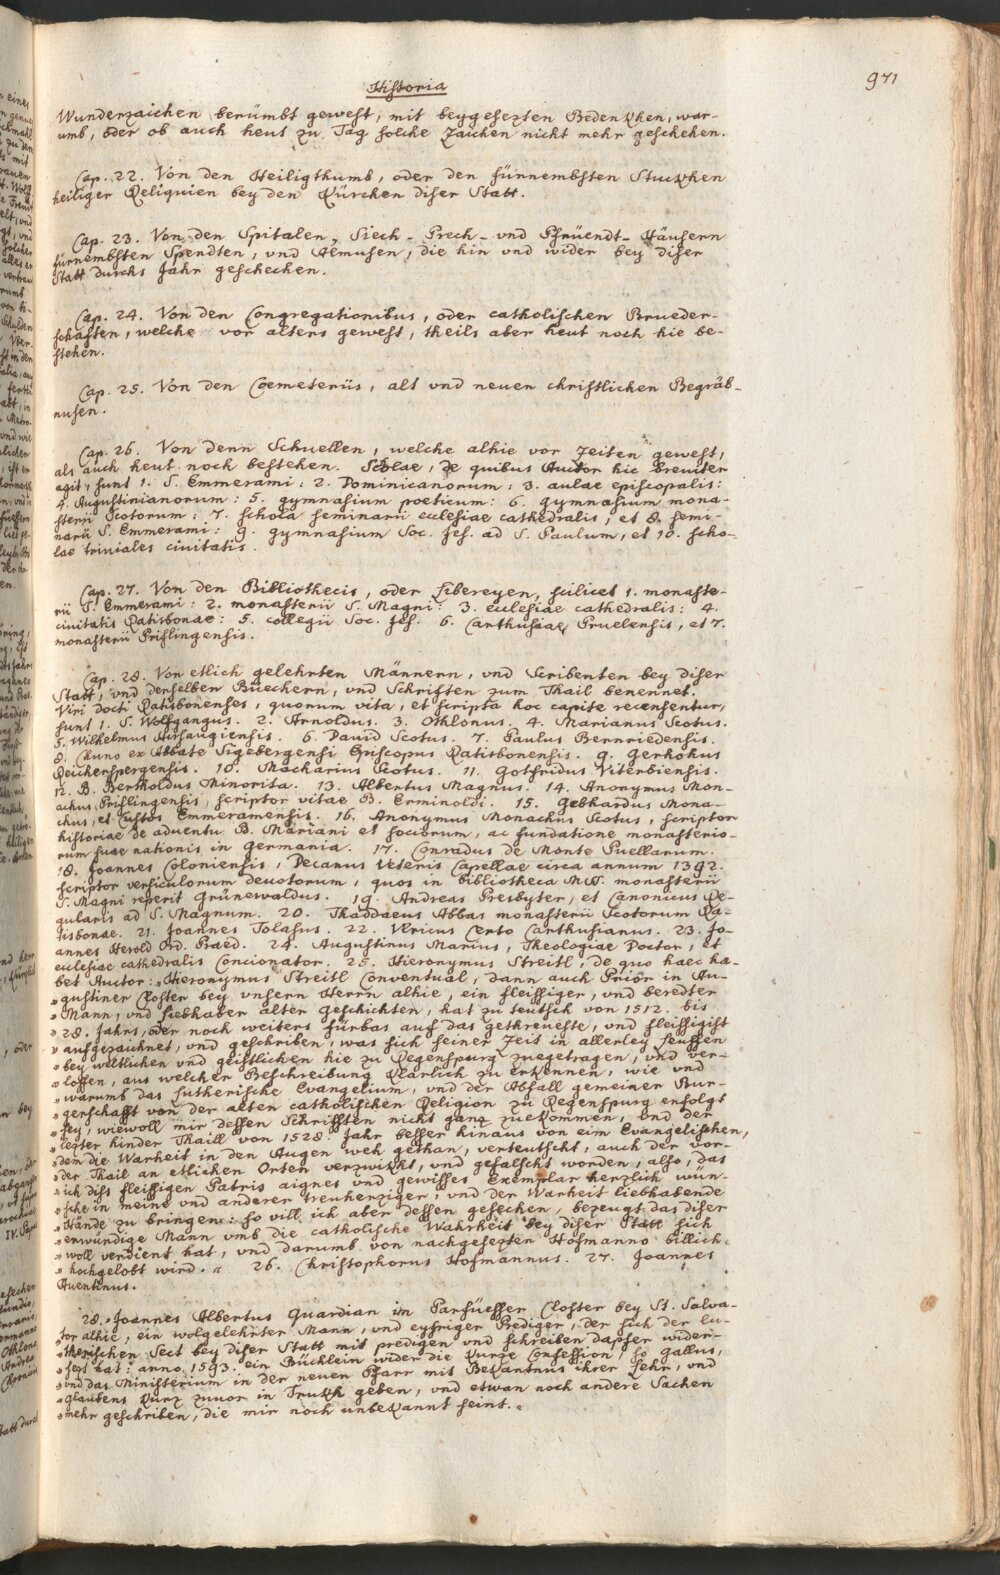 Historia
971
Wunderzaichen berümbt gewest, mit beygesezten Bedenkhen, war-
umb, oder ob auch heut zu Tag solche Zaichen nicht mehr geschehen.
Cap. 22. Von den Heiligthumb, oder den fürnembsten Stuckhen
heiliger Reliquien bey den Kürchen diser Statt.
Cap. 23. Von den Spitalen, Siech- Prech- vnd Pfrüendt- Häusern
fürnembsten Spendten, vnd Almusen, die hin vnd wider bey diser
Statt durchs Jahr geschechen.
Cap. 24. Von den Congregationibus, oder catholischen Brueder-
schafften, welche vor alters gewest, theils aber heut noch hie be-
stehen.
Cap. 25. Von den Coemeteriis, alt vnd neuen christlichen Begräb-
nusen.
Cap. 26. Von denn Schuellen, welche alhie vor Zeiten gewest,
als auch heut noch bestehen. Scolae, de quibus Auctor hic breuiter
agit, sunt 1. S. Emmerami: 2. Dominicanorum: 3. aulae episcopalis:
4. Augustinianorum: 5. gymnasium poeticum: 6. gymnasium mona-
sterii Scotorum: 7. schola seminarii ecclesiae cathedralis, et 8. semi-
narii S. Emmerami: 9. gymnasium Soc. Jes. ad S. Paulum, et 10. scho-
lae triuiales ciuitatis.
Cap. 27. Von den Bibliothecis, oder Libereyen, scilicet 1. monaste-
rii S. Emmerami: 2. monasterii S. Magni: 3. ecclesiae cathedralis: 4.
ciuitatis Ratisbonae: 5. collegii Soc. Jes. 6. Carthusiae Pruelensis, et 7.
monasterii Prislingensis.
Cap. 28. Von etlich gelehrten Männern, vnd Scribenten bey diser
Statt, vnd derselben Büechern, vnd Schriften zum Thail benennet.
Viri docti Ratisbonenses, quorum vita, et scripta hoc capite recensentur,
sunt 1. S. Wolfgangus. 2. Arnoldus. 3. Othlonus. 4. Marianus Scotus.
5. Wilhelmus Hirsaugiensis. 6. Dauid Scotus. 7. Paulus Bernriedensis.
8. Chuno ex Abbate Sigebergensi Episcopus Ratisbonensis. 9. Gerhohus
Reicherspergensis. 10. Macharius Scotus. 11. Gotfridus Viterbiensis.
12. B. Bertholdus Minorita. 13. Albertus Magnus. 14. Anonymus Mon-
achus Prislingensis, scriptor vitae B. Erminoldi. 15. Gebhardus Mona-
chus, et Custos Emmeramensis. 16. Anonymus Monachus Scotus, scriptor
historiae de aduentu B. Mariani et sociorum, ac fundatione monasterio-
rum suae nationis in Germania. 17. Conradus de Monte Puellarum.
18. Joannes Coloniensis, Decanus Veteris Capellae circa annum 1392.
scriptor versiculorum deuotorum, quos in bibliotheca MS. monasterii
S. Magni reperit Grünewaldus. 19. Andreas Presbyter, et Canonicus Re-
gularis ad S. Magnum. 20. Thaddaeus Abbas monasterii Scotorum Ra-
tisbonae. 21. Joannes Tolasus. 22. Vlricus Certo Carthusianus. 23. Jo-
annes Herold Ord. Praed. 24. Augustinus Marius, Theologiae Doctor, et
ecclesiae cathedralis Concionator. 25. Hieronymus Streitl, de quo haec ha-
bet Auctor: "Hieronymus Streitl Conventual, dann auch Prior in Au-
"gustiner Closter bey vnsern Herrn alhie, ein fleissiger, vnd beredter
"Mann, vnd liebhaber alter geschichten, hat zu teutsch von 1512. bis
"28. Jahrs, oder noch weiters fürbas auf das getreueste, und fleissigist
"aufgezaichnet, vnd geschriben, was sich seiner Zeit in allerley
"bey weltlichen vnd geistlichen hie zu Regenspurg zuegetragen, vnd ver-
"loffen, aus welcher Beschreibung klarlich zu erkennen, wie vnd
"warumb das lutherische Evangelium, vnd der Abfall gemeiner Bur-
"gerschafft von der alten catholischen Religion zu Regenspurg erfolgt
"sey, wiewoll mir dessen Schrifften nicht ganz zuekommen, vnd der
"lezter hinder Thaill von 1528. Jahr besser hinaus von eim Evangelischen,
"dem die Warheit in den Augen weh gethan, verteutscht, auch der vor-
"der Thail an etlichen Orten verzwikt, vnd gefälscht worden, also, das
"ich diss fleissigen Patris aignes vnd gewisses Exemplar herzlich wün-
"sche in meine vnd anderer treuherziger, vnd der Warheit liebhabende
"Hände zu bringen: so vill ich aber dessen gesechen, bezeugt das diser
"erwürdige Mann vmb die catholische Wahrheit bey diser Statt sich
"woll verdient hat, vnd darumb von nachgesezten Hofmanno billich
"hochgelobt wird." 26. Christophorus Hofmannus. 27. Joannes
Auentinus.
28. "Joannes Albertus Quardian im Parfüesser Closter bey St. Salva-
"tor alhie, ein wolgelehrter Mann, vnd eyfriger Prediger, der sich der lu-
"therischen Sect bey diser Statt mit predigen vnd schreiben dapfer wider-
"sezt hat: anno 1593. ein Büchlein wider die kurze Confession, so Gallus,
"vnd das Ministerium in der neuen Pfarr mit Bekantnus ihrer Lehr, vnd
"glaubens kurz zuuor in Trukh geben, vnd etwan noch andere Sachen
"mehr geschriben, die mir noch unbekannt seint."